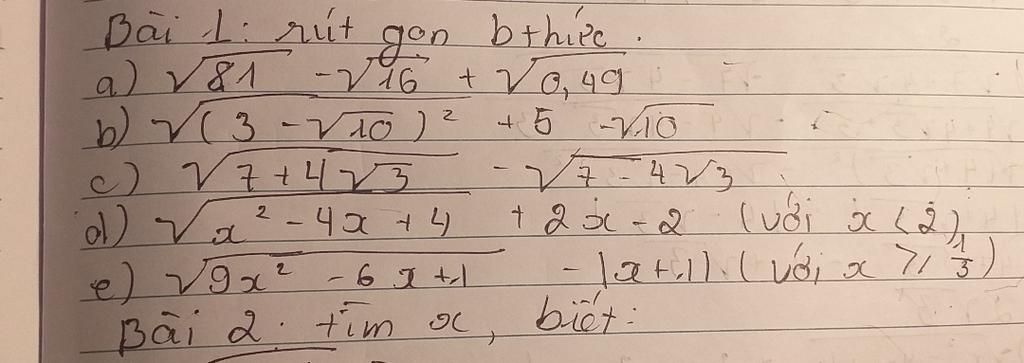 Bài 1: rút gọn bthức.
a) √81 - √16 + √0,49
b) √(3 - √10)² + 5 - √10
c) √7 + 4√3 - √7 - 4√3
d) √x² - 4x + 4 + 2x - 2 (với x < 2)
e) √9x² - 6x + 1 - |x + 1| (với x ≥ 1/3)
Bài 2: tìm x, biết: